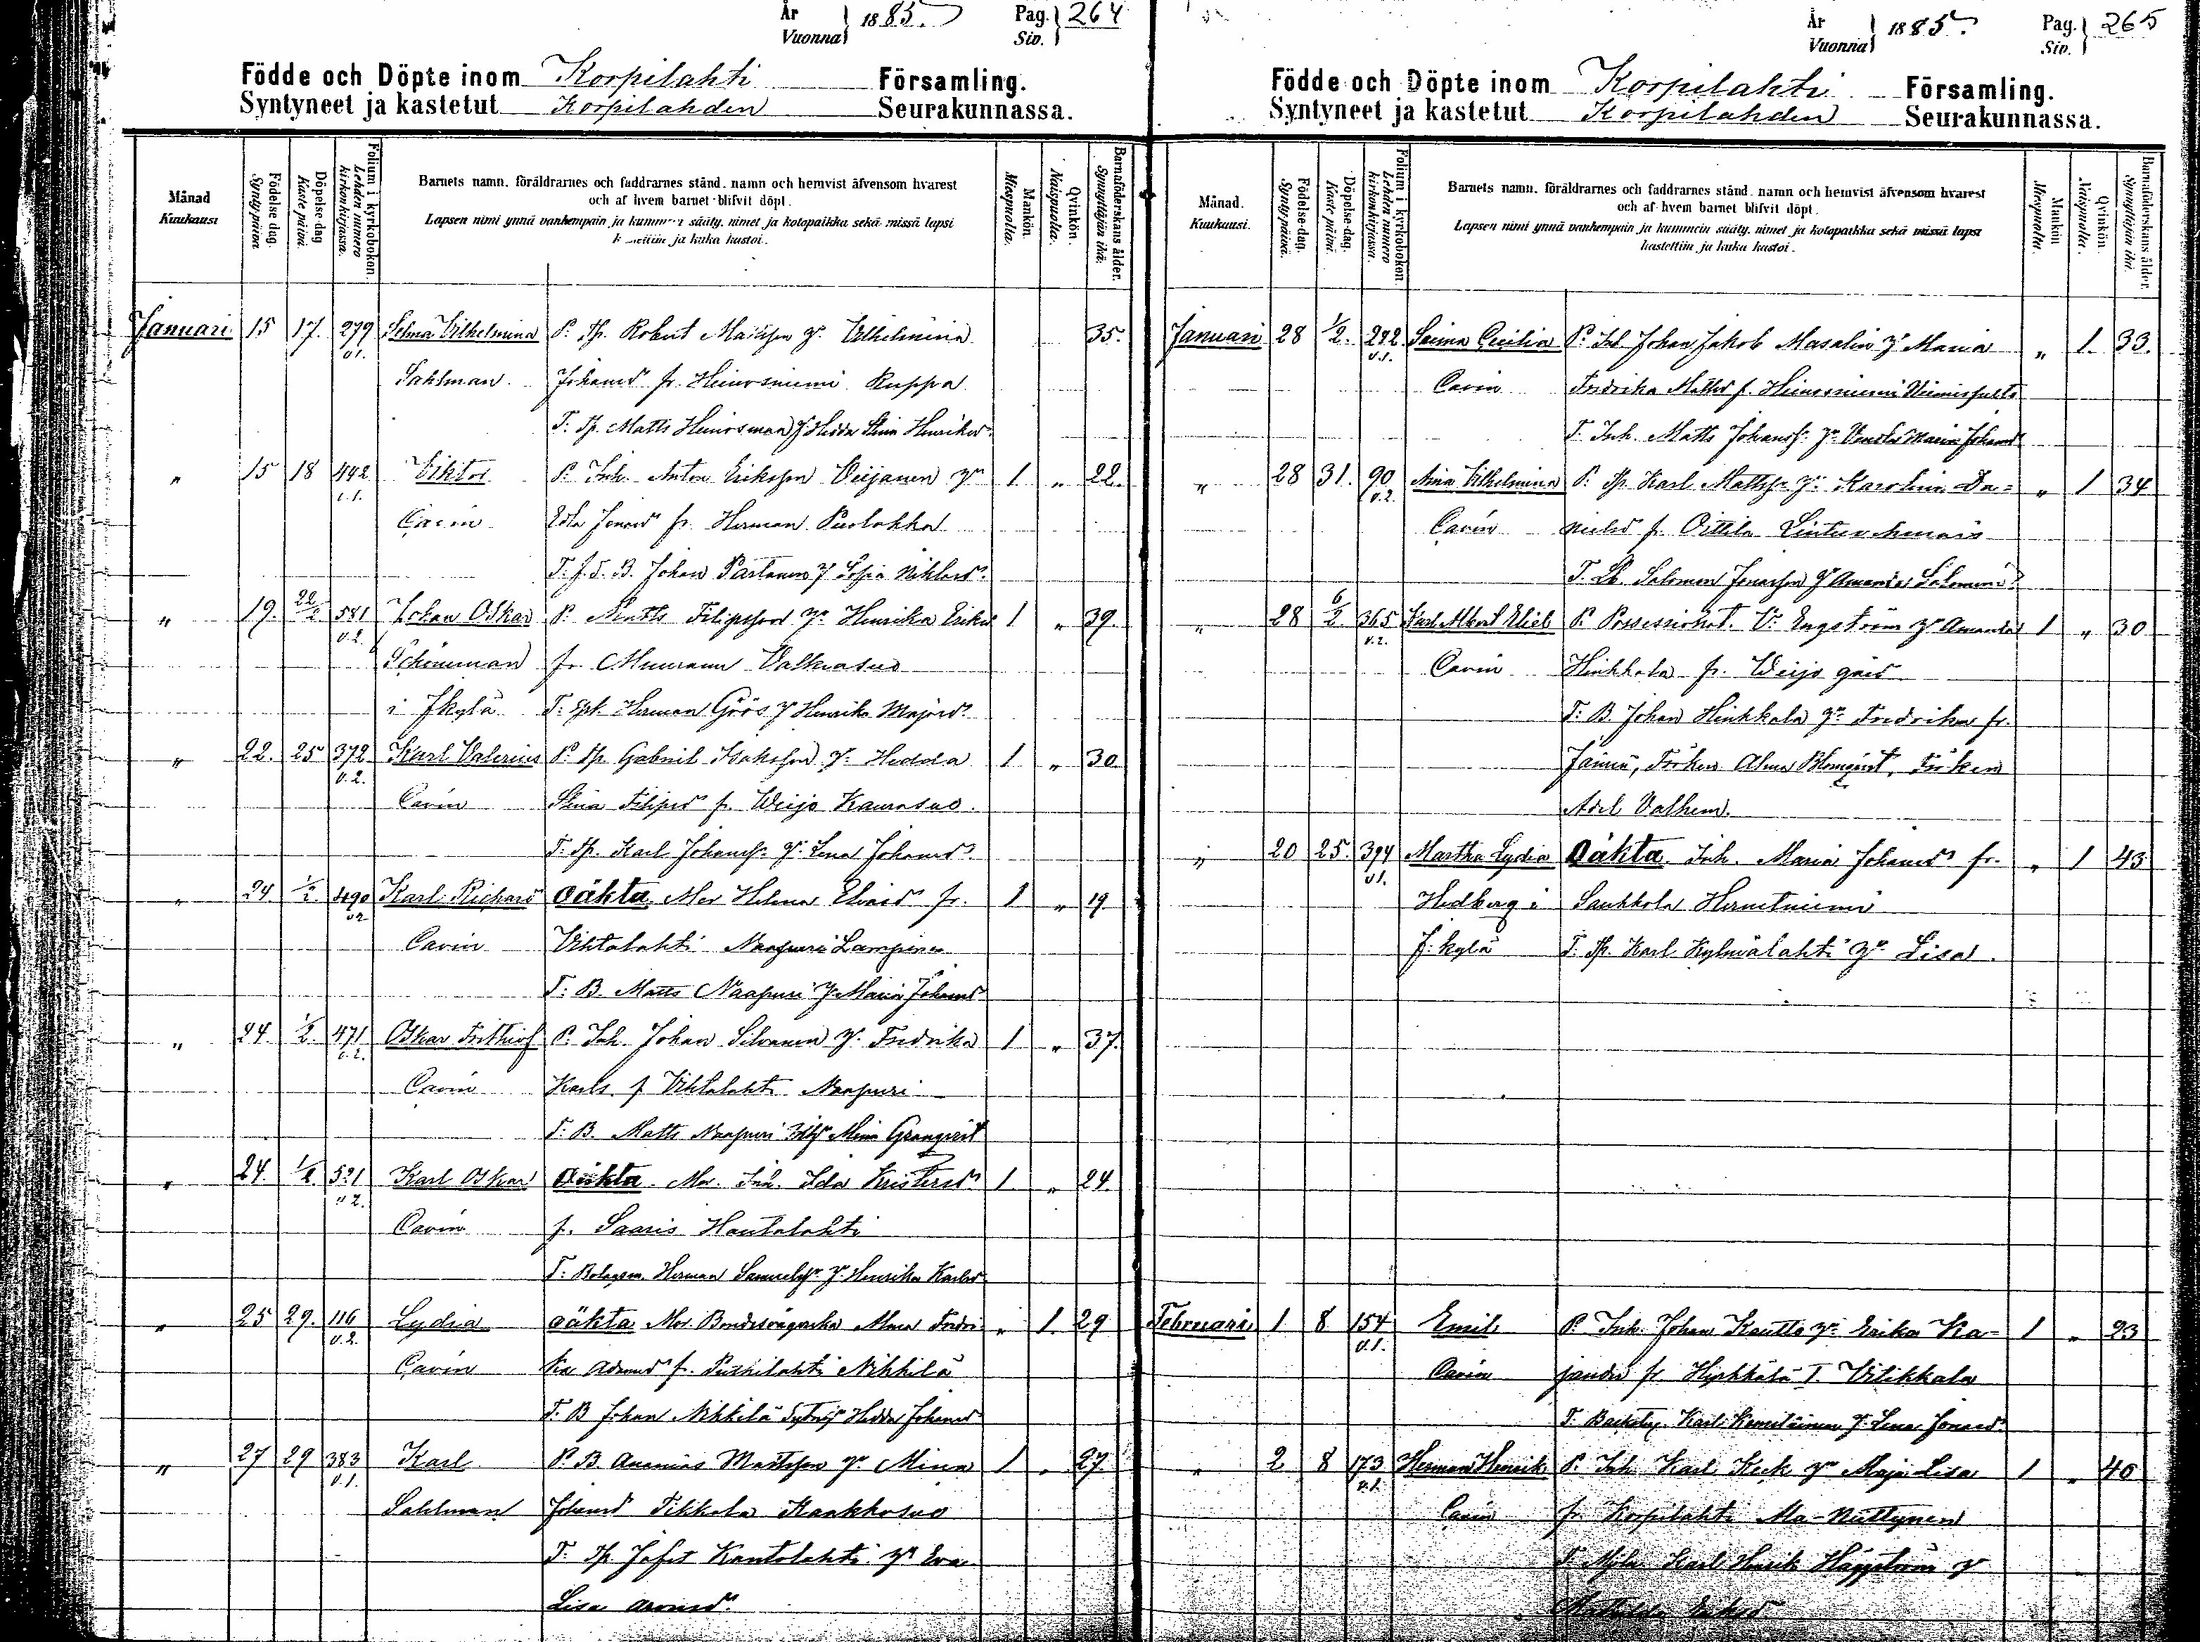 År
Vuonna } 1885. Pag.
Siv. } 264
Födde och Döpte inom Korpilahti Församling.
Syntyneet ja kastetut Korpilahden Seurakunnassa.
Månad
Kuukausi
Födelse dag.
Synty päivä.
Döpelse-dag
Kaste päivä.
Folium i kyrkobokon.
Lehden numero
kirkonkirjassa.
Barnets namn, föräldrarnes och faddrarnes stånd, namn och hemvist äfvensom hvarest
och af hvem barnet blifvit döpt.
Lapsen nimi ynnä vanhempain ja kummein sääty, nimet ja kotopaikka sekä missä lapsi
kastettiin ja kuka kastoi.
Mankön.
Miespuolia.
Qvinkön.
Naispuolia.
Barnaföderskans ålder.
Synnyttäjän ikä.
Januari 15 17. 279 v.1. Selma Vilhelmina P. Tp. Robert Mattsson Vilhelmina 35.
Sahlman Johansd fr. Heinosniemi Ruppa
T. Tp. Matts Heinosman Hedda Stina Henriksd.
" 15 18 442 Viktor P. Inh. Anton Eriksson Veijanen 1 " 22.
Cavén Edla Jonasd fr. Herman
T. J. T. B. Johan Partanen Sofia Niklasd.
" 19. 22/2 581 v.2. Johan Oskar P. Matts Filipsson Henrika Eriksd 1 " 39.
Schönman fr. Valkeasuo
i Jkylä T. Herman Göös Henrika Majord.
" 22. 25 372 v.2. Karl Valerius P. Tp. Gabriel Isaksson Hedda 1 " 30
Cavén Stina Filipsd fr. Weijo Kaurasuo.
T. Tp. Karl Johanss. Lena Johansd.
" 24 1/2 490 v.2. Karl Richard Oäkta Mor Helena fr. 1 " 19
Cavén Vihtalahti Naapuri Lampinen
T: B. Matts Naapuri Maria Johansd
" 24. 1/2. 471 Oskar Frithiof P. Inh. Johan Silvanen Fredrika 1 " 37.
Cavén Karls f Vihtalahti Naapuri
T. B. Matts Naapuri Mina Granqvist
" 24. 1/2 521 v.2. Karl Oskar Oäkta Mor. Inh. Ida Kristersd 1 " 24.
Cavén f. Saaris Hautalahti
T. Bolagsm. Herman Samuelss. Henrika Karlsd
" 25 29. 116 v.2. Lydia Oäkta Mor. Fredri- " 1. 29
Cavén ka Adamsd fr. Putkilahti Nikkilä
T. B Johan Nikkilä Hedda Johansd
" 27 29 383 v.1. Karl P. B. Ananias Mattsson Mina 1 " 27.
Sahlman Johansd Tikkala Kaakkosuo
T. Tp. Jafet Kantolahti Eva
Lisa Aronsd.
År
Vuonna } 1885. Pag.
Siv. } 265
Födde och Döpte inom Korpilahti Församling.
Syntyneet ja kastetut Korpilahden Seurakunnassa.
Månad.
Kuukausi.
Födelse-dag.
Synty päivä.
Döpelse-dag.
Kaste päivä.
Folium i kyrkobokon.
Lehden numero
kirkonkirjassa.
Barnets namn, föräldrarnes och faddrarnes stånd, namn och hemvist äfvensom hvarest
och af hvem barnet blifvit döpt.
Lapsen nimi ynnä vanhempain ja kummein sääty, nimet ja kotopaikka sekä missä lapsi
kastettiin ja kuka kastoi.
Mankön
Miespuolia.
Qvinkön.
Naispuolia.
Barnaföderskans ålder.
Synnyttäjän ikä.
Januari 28 1/2. 282. v.1. Saima Cecilia P. Johan Jakob Masalin Maria " 1. 33.
Cavén Fredrika Mattsd f. Heinosniemi
T. Inh. Matts Johanss. Maria Johansd
" 28 31. 90 v.2. Aina Vilhelmina P. Tp. Karl Mattss. Karolina Da- " 1 34
Cavén nielsd f. Oittila
T. Salomon Jonasson Amanda Salomonsd
" 28 6/2 365 v.2. Karl Albert Eliel P. Possessionat. V. Engström Amanda 1 " 30
Cavén Hinkkala fr. Weijo gård
T. B. Johan Hinkkala Fredrika fr.
Jämsä, Fröken Alma Blomqvist, Fröken
Valhem.
" 20 25. 394 v.1. Martha Lydia Oäkta. Inh. Maria Johansd fr. " 1 43
Hedberg i Saukkola Hernetniemi
J. kylä T. Tp. Karl Kylmälahti Lisa.
Februari 1 8 154 v.1. Emil P. Inh. Johan Kautto Erika Ka- 1 " 23
Cavén jandr fr Hyrkkälä I Vilikkala
T. Karl Lena Jonasd
" 2 8 173 v.1. Herman Henrik P. Inh Karl Keck Maja Lisa 1 " 40
Cavén fr. Korpilahti Ma-Nuttynen
T. Karl Henrik Häggström
Mathilda Eriksd